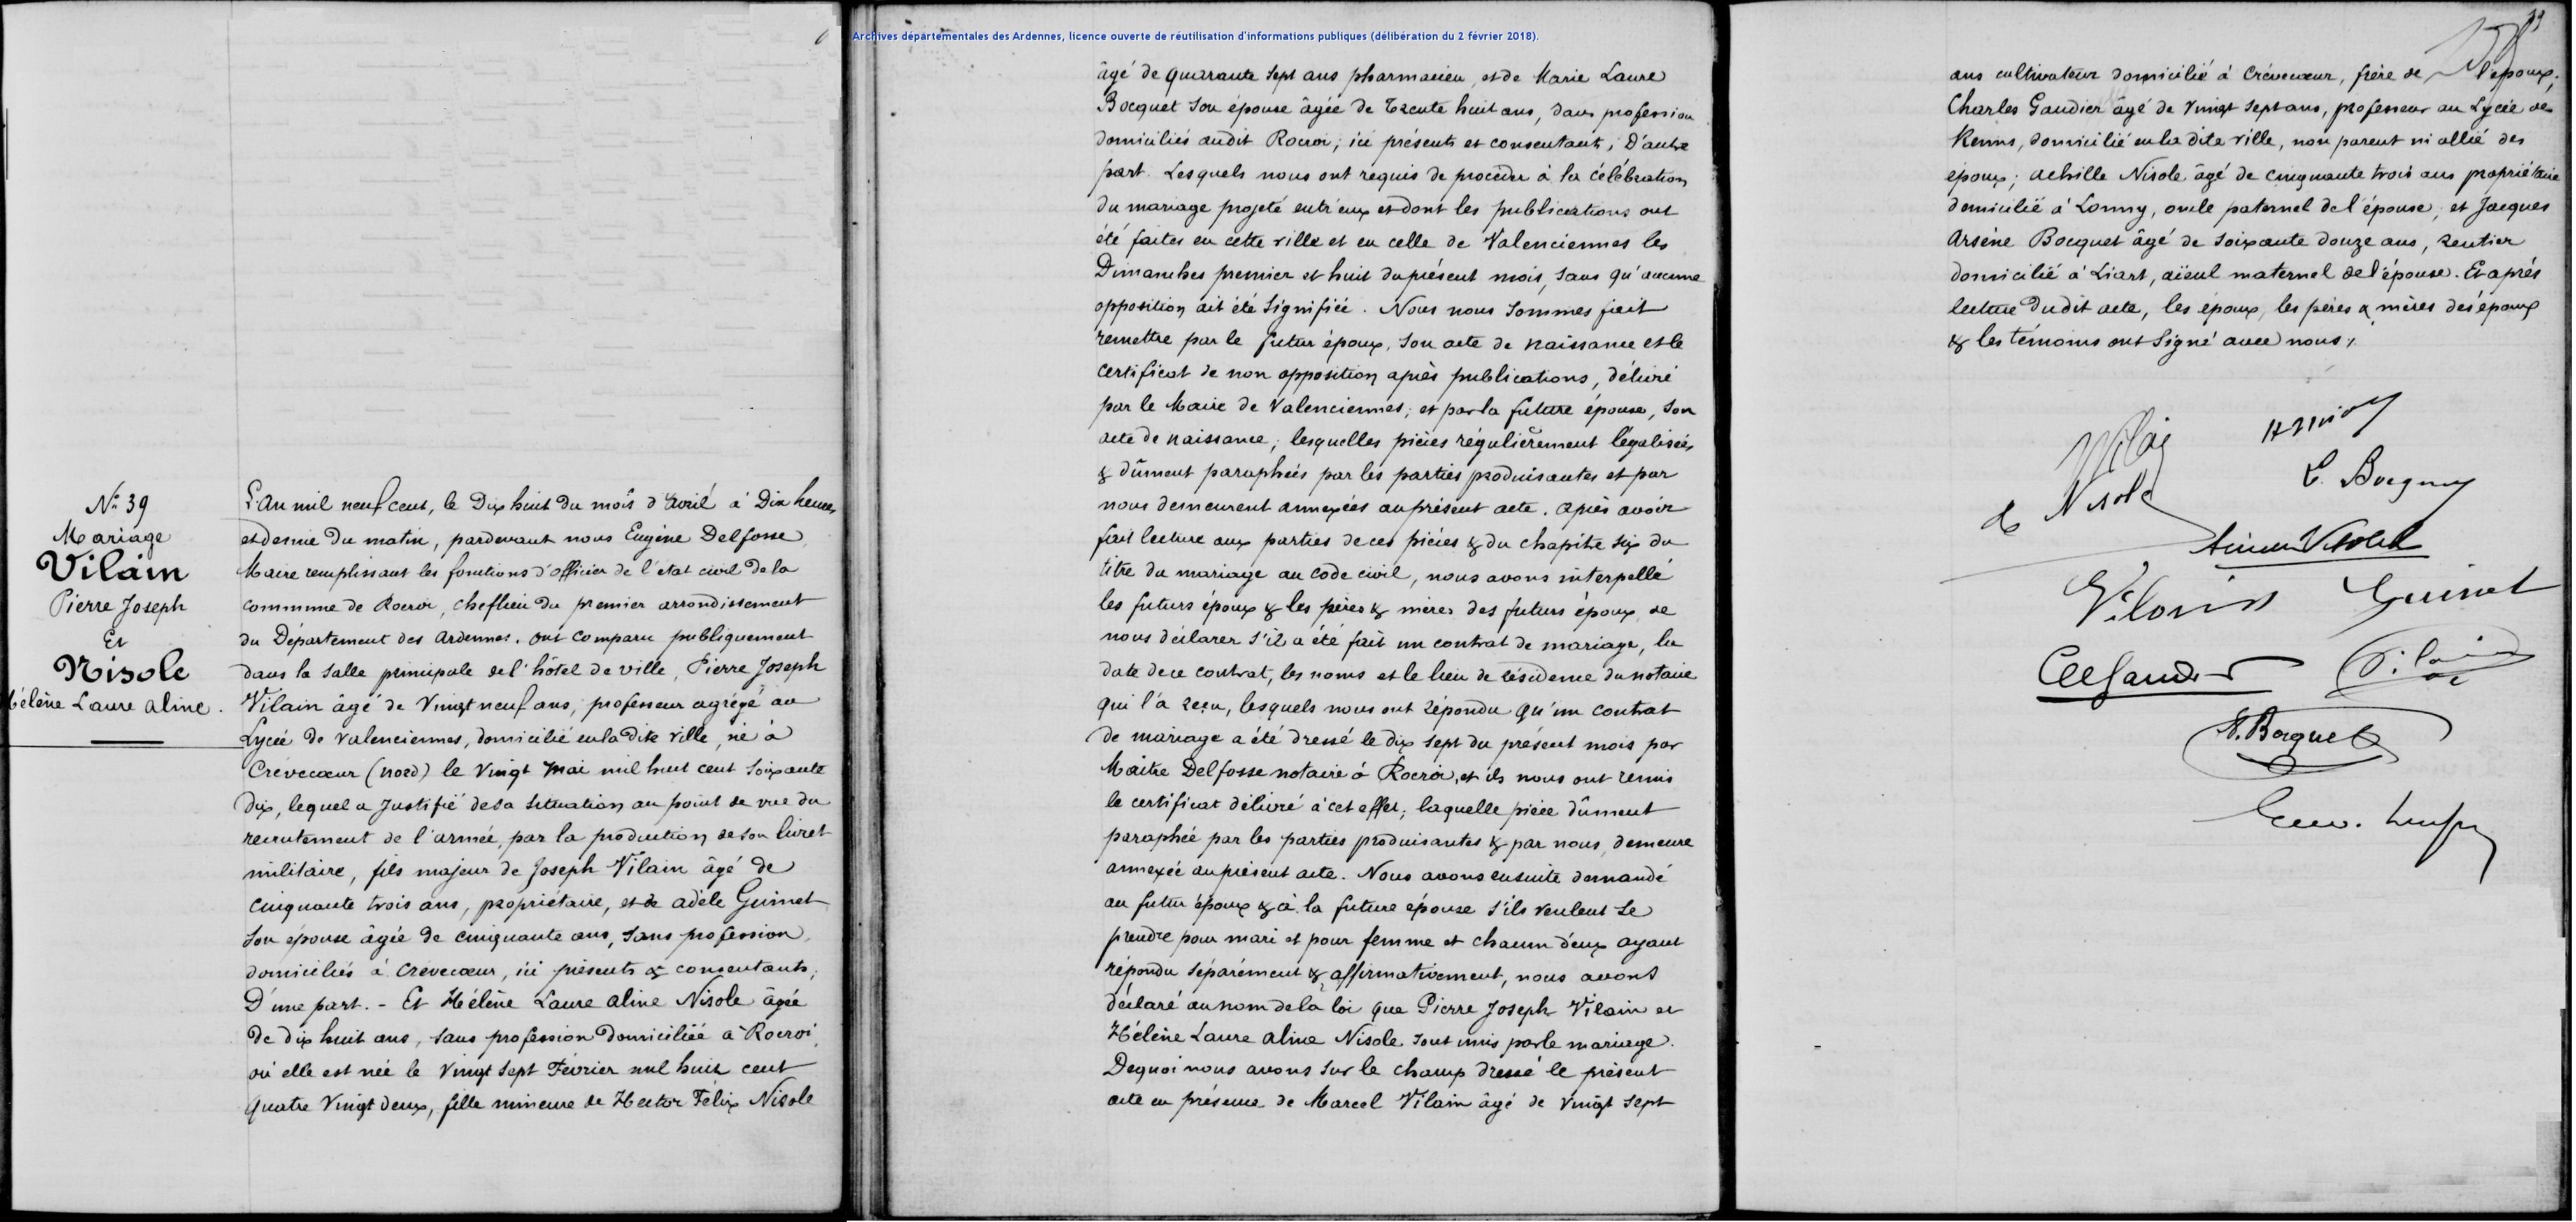 Archives départementales des Ardennes, licence ouverte de réutilisation d'informations publiques (délibération du 2 février 2018).
N° 39
Mariage
Vilain
Pierre Joseph
Et
Nisole
Hélène Laure Aline.
L'an mil neuf cent, le Dix huit du mois d'Avril à Dix heures
et demie du matin, pardevant nous Eugène Delfosse
Maire remplissant les fonctions d'officier de l'état civil de la
commune de Rocroi, cheflieu du premier arrondissement
du Département des Ardennes, ont comparu publiquement
dans la salle principale de l'hôtel de ville, Pierre Joseph
Vilain âgé de Vingt neuf ans, professeur agrégé au
Lycée de Valenciennes, domicilié en la dite ville, né à
Crèvecœur (nord) le Vingt Mai mil huit cent soixante
dix, lequel a justifié de sa situation au point de vue du
recrutement de l'armée, par la production de son livret
militaire, fils majeur de Joseph Vilain âgé de
cinquante trois ans, propriétaire, et de Adèle Guinet
son épouse âgée de cinquante ans, sans profession,
domiciliés à Crèvecœur, ici présents & consentants;
D'une part. - Et Hélène Laure Aline Nisole âgée
de dix huit ans, sans profession domiciliée à Rocroi,
où elle est née le Vingt sept Février mil huit cent
quatre Vingt deux, fille mineure de Hector Félix Nisole
âgé de quarante sept ans pharmacien, et de Marie Laure
Bocquet son épouse âgée de trente huit ans, sans profession
domiciliés audit Rocroi; ici présents et consentants; D'autre
part. Lesquels nous ont requis de procéder à la célébration
du mariage projeté entr'eux et dont les publications ont
été faites en cette ville et en celle de Valenciennes les
Dimanches premier et huit du présent mois, sans qu'aucune
opposition ait été signifiée. Nous nous sommes fait
remettre par le futur époux, son acte de naissance et le
certificat de non opposition après publications, délivré
par le Maire de Valenciennes; et par la future épouse, son
acte de naissance; lesquelles pièces régulièrement légalisées
& dûment paraphées par les parties produisantes et par
nous demeurent annexées au présent acte. Après avoir
fait lecture aux parties de ces pièces & du chapitre six du
titre du mariage au code civil, nous avons interpellé
les futurs époux & les pères & mères des futurs époux de
nous déclarer s'il a été fait un contrat de mariage, la
date de ce contrat, les noms et le lieu de résidence du notaire
qui l'a reçu, lesquels nous ont répondu qu'un contrat
de mariage a été dressé le dix sept du présent mois par
Maître Delfosse notaire à Rocroi, et ils nous ont remis
le certificat délivré à cet effet; laquelle pièce dûment
paraphée par les parties produisantes & par nous, demeure
annexée au présent acte. Nous avons ensuite demandé
au futur époux & à la future épouse s'ils veulent se
prendre pour mari et pour femme et chacun d'eux ayant
répondu séparément & affirmativement, nous avons
déclaré au nom de la loi que Pierre Joseph Vilain et
Hélène Laure Aline Nisole sont unis par le mariage.
De quoi nous avons sur le champ dressé le présent
acte en présence de Marcel Vilain âgé de vingt sept
ans cultivateur domicilié à Crèvecœur, frère de l'époux;
Charles Gaudier âgé de Vingt sept ans, professeur au Lycée de
Reims, domicilié en la dite ville, non parent ni allié des
époux; Achille Nisole âgé de cinquante trois ans propriétaire
domicilié à Lonny, oncle paternel de l'épouse; et Jacques
Arsène Bocquet âgé de soixante douze ans, rentier
domicilié à Liart, aïeul maternel de l'épouse. Et après
lecture dudit acte, les époux, les pères & mères des époux
& les témoins ont signé avec nous.
Vilain
L. Bocquet
Nisole
Vilain Guinet
Ch Gaudier Vilain
A. Bocquet